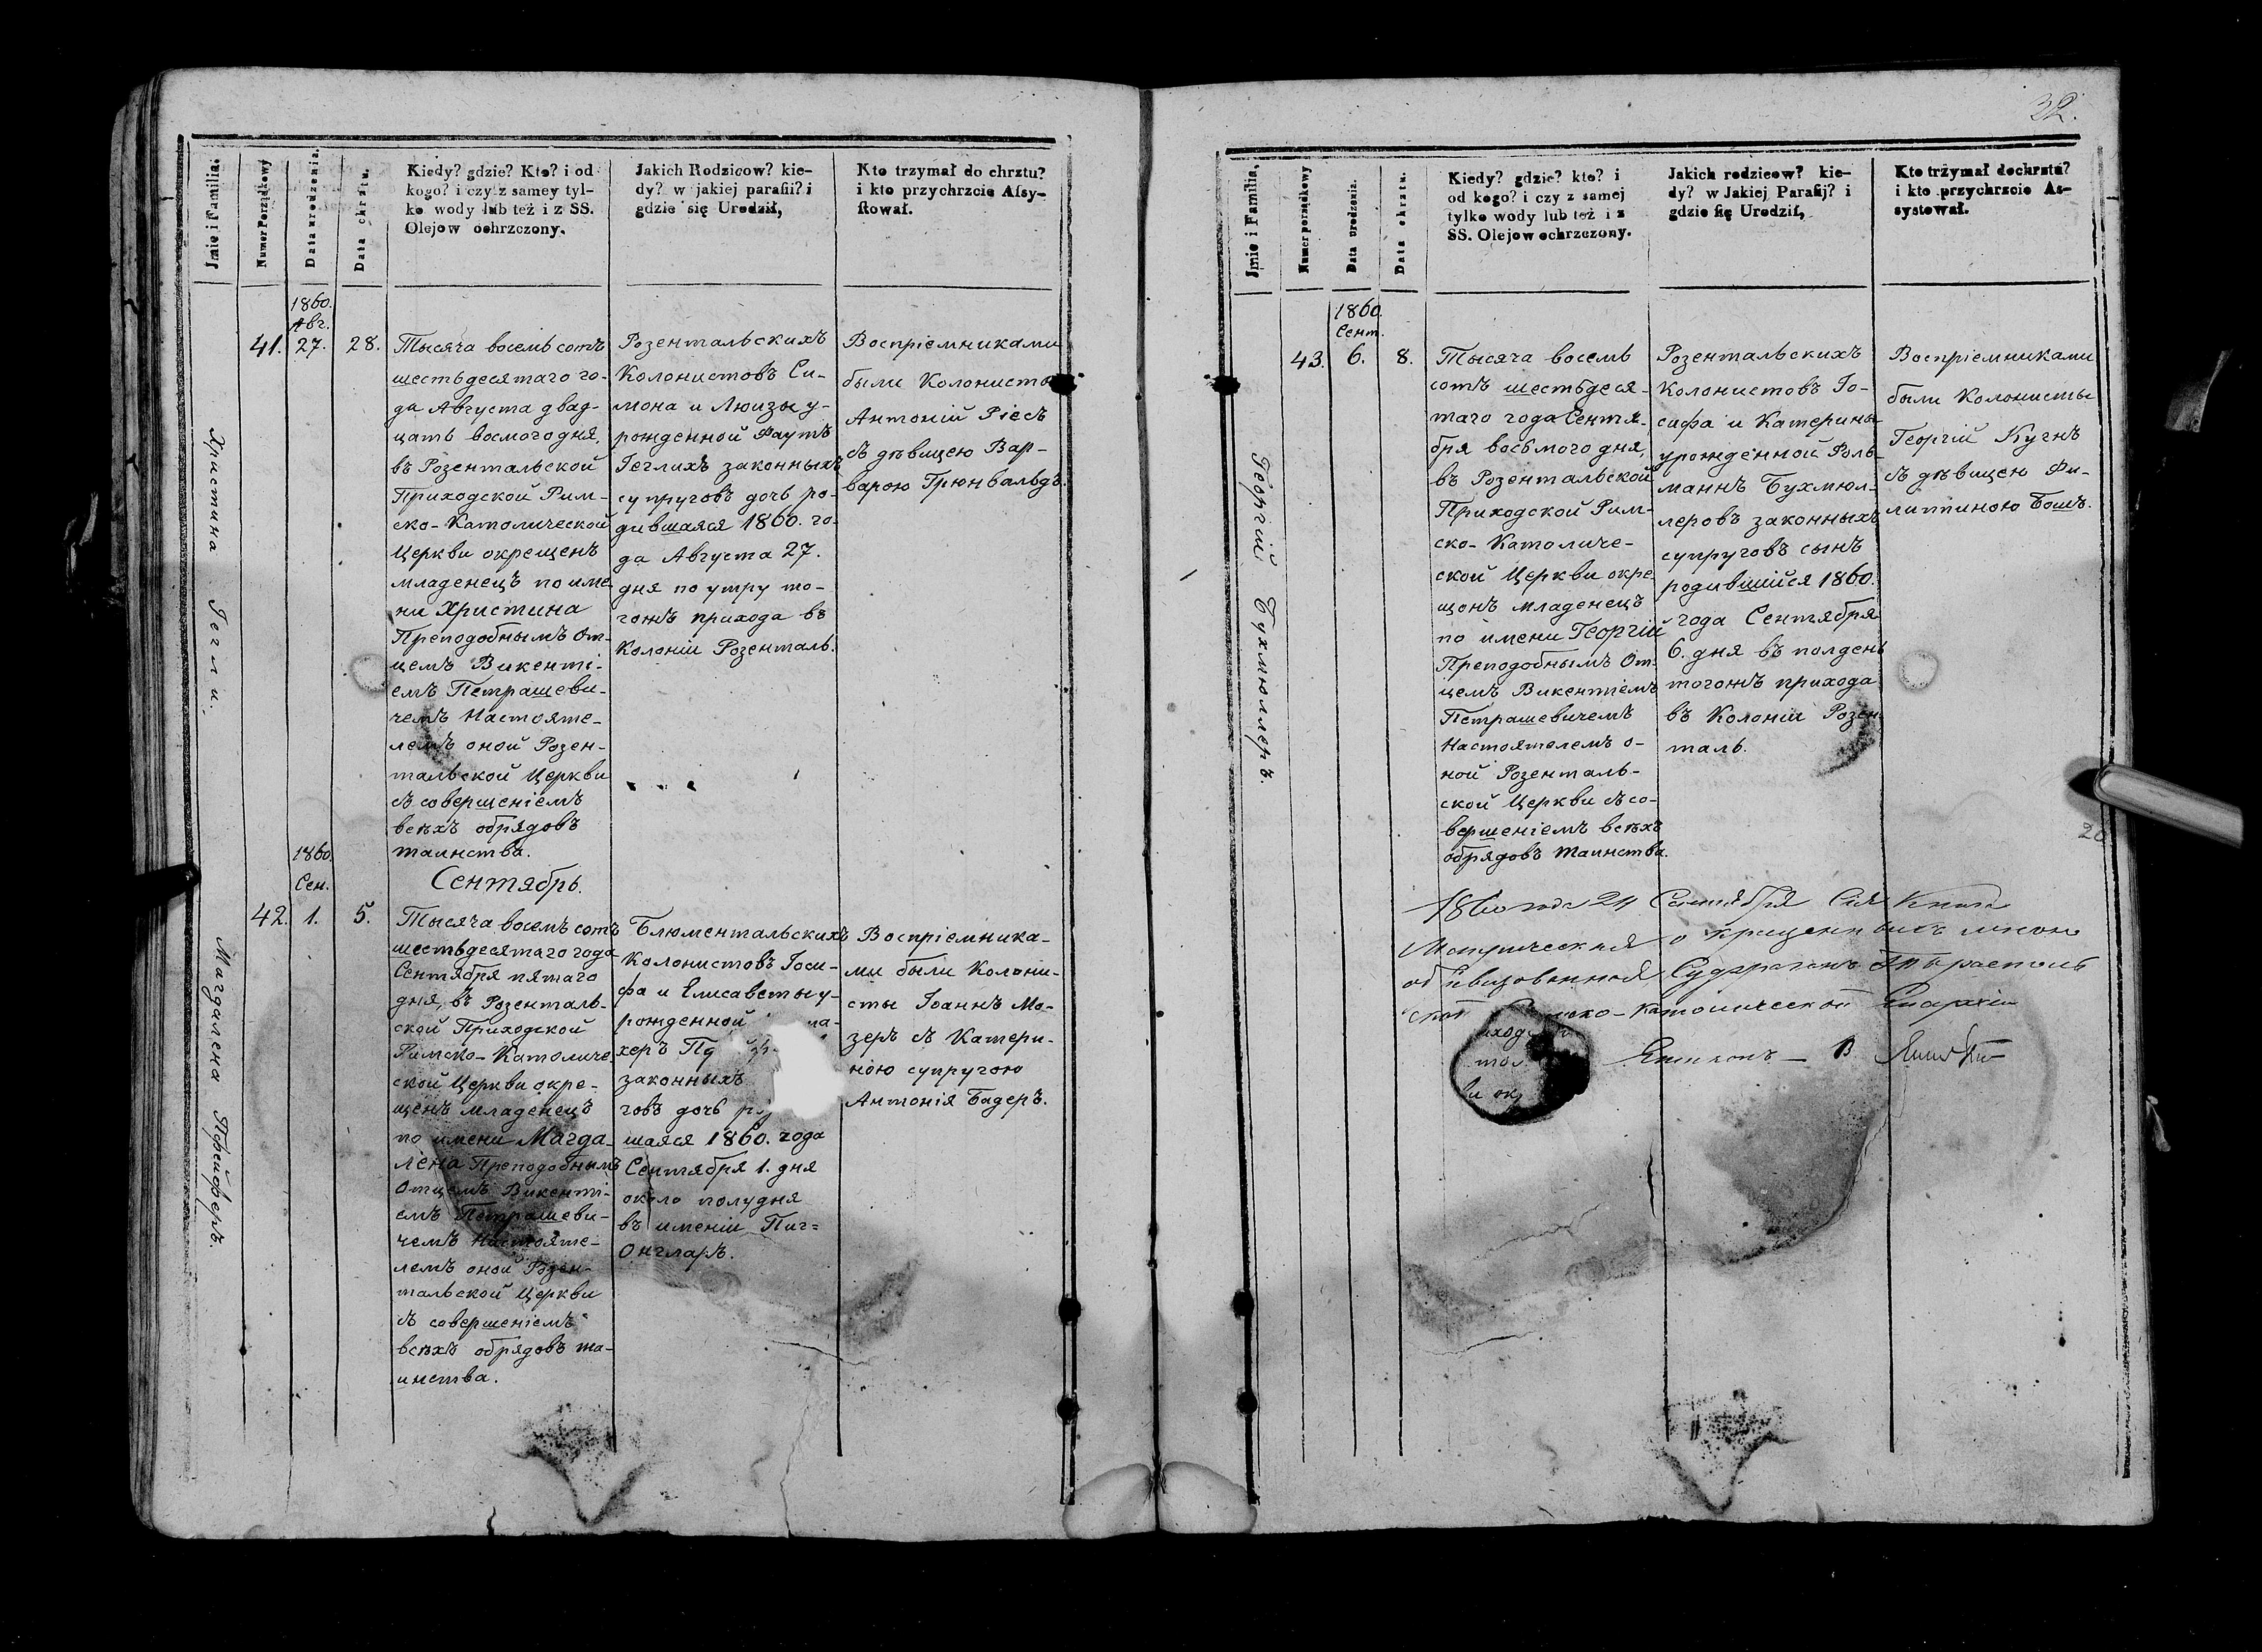 Jmie i Familia.
Numer Porządkowy
Data urodzenia.
Data chrztu.
Kiedy? gdzie? Kto? i od
kogo? i czy z samey tyl-
ko wody lub też i z SS.
Olejow ochrzczony.
Jakich Rodzicow? kie-
dy? w jakiej parafii? i
gdzie się Urodził,
Kto trzymał do chrztu?
i kto przychrzcie Afsy-
ftował.
Христина Гегли.
1860.
Авг.
41. 27. 28.
Тысяча восемь сотъ
шестьдесятаго го-
да Августа двад-
цать восмого дня,
въ Розентальской
Приходской Рим-
ско-Католической
Церкви окрещенъ
младенецъ по име-
ни Христина
Преподобнымъ От-
цемъ Викенті-
емъ Петрашеви-
чемъ Настояте-
лемъ оной Розен-
тальской Церкви
съ совершеніемъ
всѣхъ обрядовъ
таинства.
Розентальскихъ
Колонистовъ Си-
мона и Люизы у-
рожденной Фаутъ
Геглихъ законныхъ
супруговъ дочь ро-
дившаяся 1860. го-
да Августа 27.
дня по утру то-
гожъ прихода въ
Колоніи Розенталь.
Воспріемниками
были Колонисты
Антоній Рісъ
съ дѣвицею Вар-
варою Грюнвальдъ.
Магдалена Пфейферъ.
1860.
Сен.
Сентябрь.
42. 1. 5.
Тысяча восемъ сотъ
шестьдесятаго года
Сентября пятаго
дня, въ Розенталь-
ской Приходской
Римско-Католиче-
ской Церкви окре-
щенъ младенецъ
по имени Магда-
лена Преподобнымъ
Отцемъ Викенті-
емъ Петрашеви-
чемъ Настояте-
лемъ оной Розен-
тальской Церкви
съ совершеніемъ
всѣхъ обрядовъ та-
инства.
Блюментальскихъ
Колонистовъ Іоси-
фа и Елисаветы у-
рожденной
херъ
законныхъ
говъ дочь
шаяся 1860. года
Сентября 1. дня
около полудня
въ имѣніи Пиг=
Онгларъ.
Воспріемника-
ми были Колони-
сты Іоаннъ Мо-
зеръ съ Катери-
ною супругою
Антонія Бадеръ.
32.
Jmie i Familia,
Numer porządkowy
Data urodzenia.
Data chrztu.
Kiedy? gdzie? kto? i
od kogo? i czy z samej
tylko wody lub też i z
SS. Olejow ochrzczony.
Jakich rodzicow? kie-
dy? w Jakiej Parafij? i
gdzie fię Urodził,
Kto trzymał dochrztu?
i kto przychrzcie As-
systował.
Георгій Бухмюллеръ.
1860.
Сент.
43. 6. 8.
Тысяча восемь
сотъ шестьдеся-
таго года Сентя-
бря восьмого дня,
въ Розентальской
Приходской Рим-
ско-Католиче-
ской Церкви окре-
щенъ младенецъ
по имени Георгій
Преподобнымъ От-
цемъ Викентіемъ
Петрашевичемъ
Настоятелемъ о-
ной Розенталь-
ской Церкви съ со-
вершеніемъ всѣхъ
обрядовъ таинства.
Розентальскихъ
Колонистовъ Іо-
сифа и Катерины
урожденной Роль-
маннъ Бухмюл-
леровъ законныхъ
супруговъ сынъ
родившійся 1860.
года Сентября
6. дня въ полдень
тогожъ прихода
въ Колоніи Розен-
таль.
Воспріемниками
были Колонисты
Георгій Кугнъ
съ дѣвицею Фи-
липпиною Бошъ.
20
1860 года 24 Сентября Сія Книга
Метрическая о крещении мною
Тирасполь
ской Римско-Католической Епархіи
Епископъ